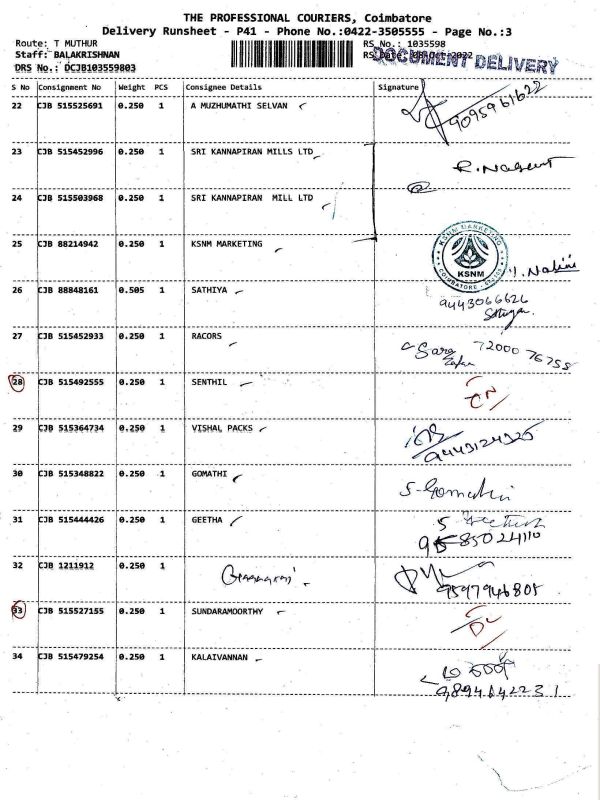 THE PROFESSIONAL COURIERS, Coimbatore
Delivery Runsheet - P41 - Phone No.:0422-3505555 - Page No.:3
Route: T MUTHUR RS No.: 1035598
Staff: BALAKRISHNAN RS Date: 08-Oct-2022
DOCUMENT DELIVERY
DRS No.: DCJB103559803
S No Consignment No Weight PCS Consignee Details Signature
22 CJB 515525691 0.250 1 A MUZHUMATHI SELVAN 9095961622
23 CJB 515452996 0.250 1 SRI KANNAPIRAN MILLS LTD
24 CJB 515503968 0.250 1 SRI KANNAPIRAN MILL LTD
25 CJB 88214942 0.250 1 KSNM MARKETING
KSNM MARKETING
KSNM
COIMBATORE
26 CJB 88848161 0.505 1 SATHIYA 9443066626
27 CJB 515452933 0.250 1 RACORS 72000 76755
28 CJB 515492555 0.250 1 SENTHIL
29 CJB 515364734 0.250 1 VISHAL PACKS 9443124325
30 CJB 515348822 0.250 1 GOMATHI S. Gomathi
31 CJB 515444426 0.250 1 GEETHA
32 CJB 1211912 0.250 1 9597946805
33 CJB 515527155 0.250 1 SUNDARAMOORTHY
34 CJB 515479254 0.250 1 KALAIVANNAN